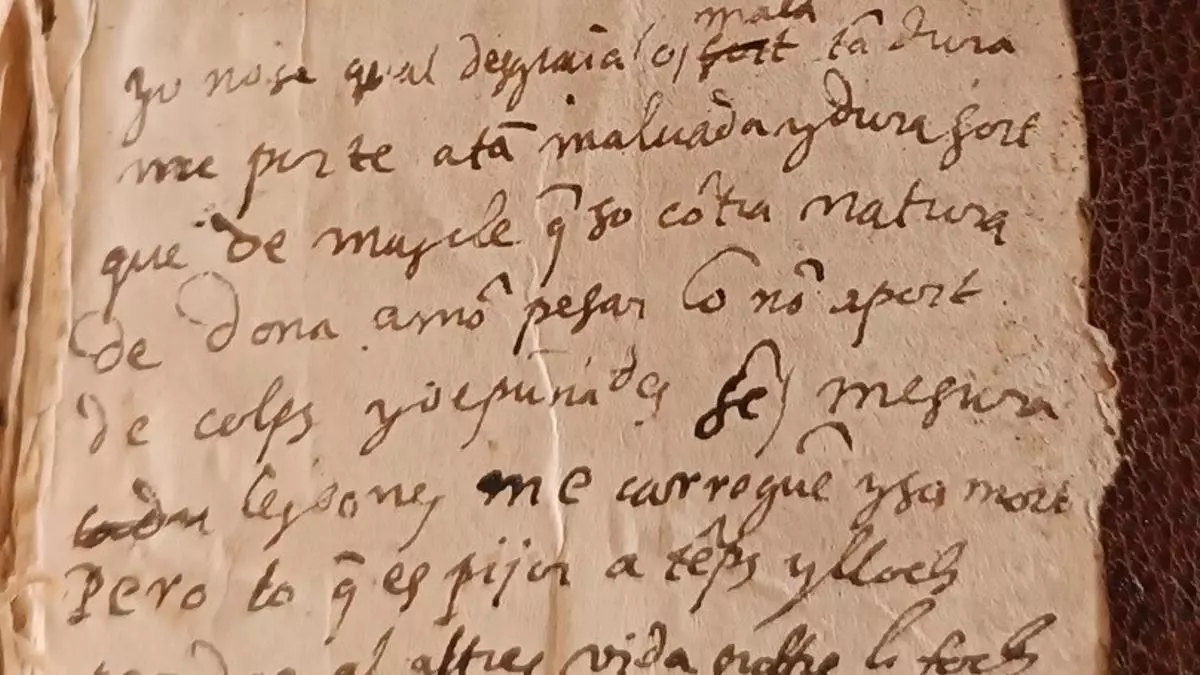 mala
yo no se qual desgracia o sort tā dura
me porte a tā maluada y dura sort
que de mascle q̄ so cōtra natura
de dona amo pesar lo nō aport
de colps y de puñades sēs mesura
les dones me carreguē y so mort
Pero lo q̄ es pijor a tēps y lloch
al altres vida sobre lo foch